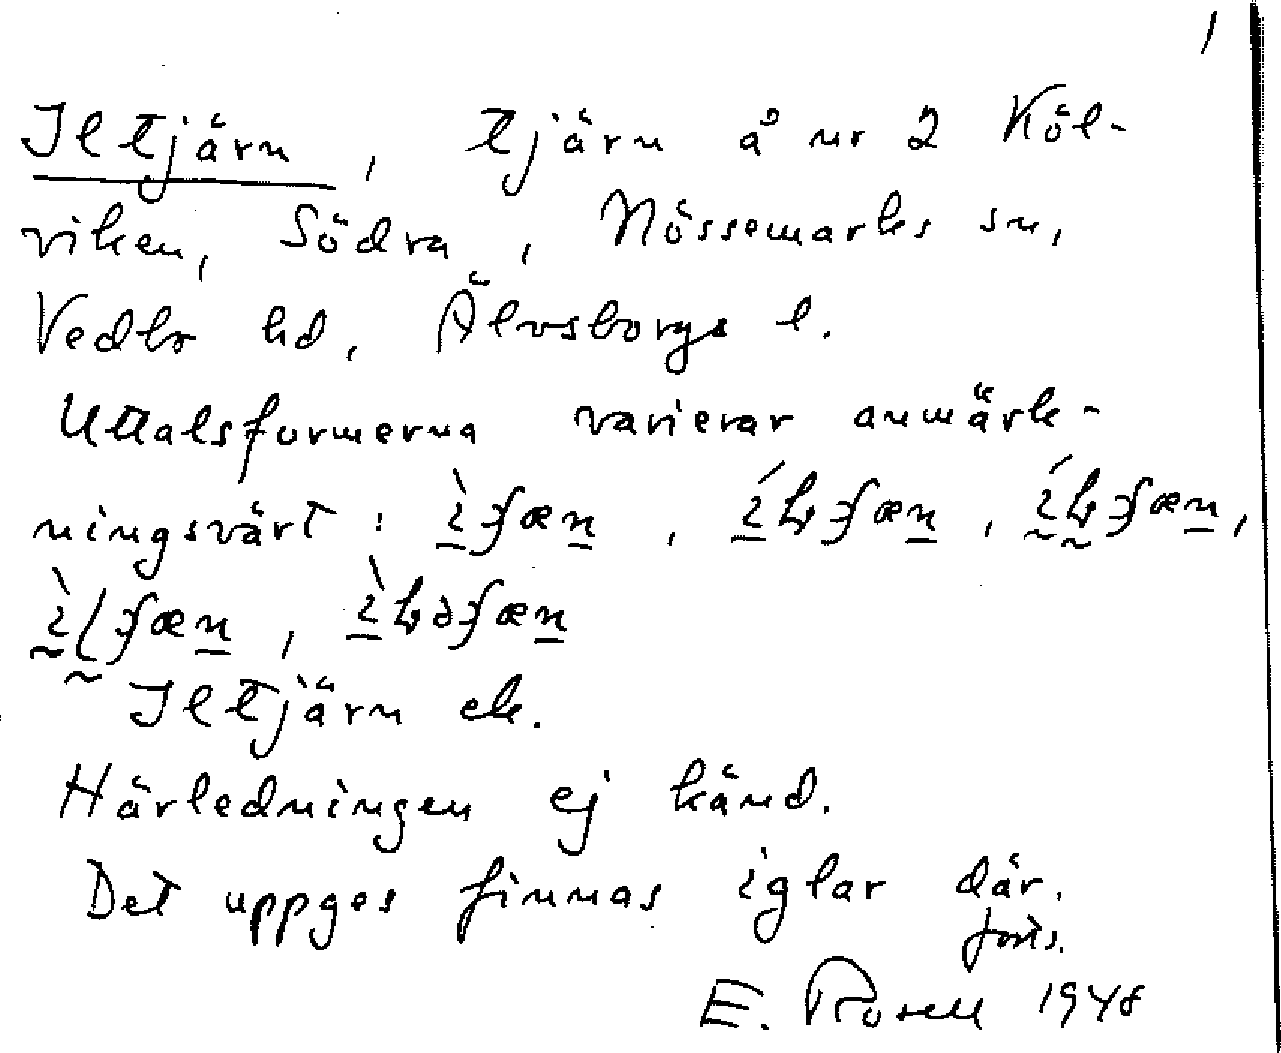 1
Iltjärn, tjärn å nr 2 Köl-
viken, Södra, Nössemarks sn,
Vedbo hd, Älvsborgs l.
Uttalsformerna varierar anmärk-
ningsvärt:
Iltjärn ek.
Härledningen ej känd.
Det uppges finnas iglar där.
forts.
E. Rosell 1948